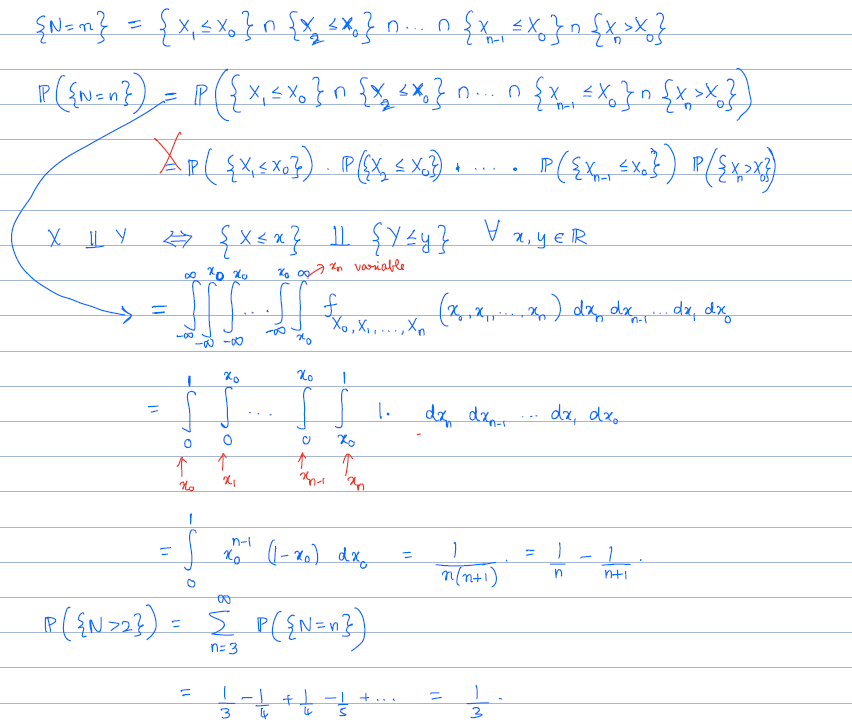 {N=n} = {X₁ ≤ X₀} ∩ {X₂ ≤ X₀} ∩ ... ∩ {X_{n-1} ≤ X₀} ∩ {X_n > X₀}
ℙ({N=n}) = ℙ({X₁ ≤ X₀} ∩ {X₂ ≤ X₀} ∩ ... ∩ {X_{n-1} ≤ X₀} ∩ {X_n > X₀})
= ℙ({X₁ ≤ X₀}) · ℙ({X₂ ≤ X₀}) · .... · ℙ({X_{n-1} ≤ X₀}) ℙ({X_n > X₀})
X ⫫ Y ⇔ {X ≤ x} ⫫ {Y ≤ y} ∀ x, y ∈ ℝ
→ x_n variable
= ∫_{-∞}^{∞} ∫_{-∞}^{x₀} ∫_{-∞}^{x₀} ... ∫_{-∞}^{x₀} ∫_{x₀}^{∞} f_{X₀, X₁, ..., X_n} (x₀, x₁, ..., x_n) dx_n dx_{n-1} ... dx₁ dx₀
= ∫_0^1 ∫_0^{x₀} ... ∫_0^{x₀} ∫_{x₀}^1 1. dx_n dx_{n-1} ... dx₁ dx₀
↑ ↑ ↑ ↑
x₀ x₁ x_{n-1} x_n
= ∫_0^1 x₀^{n-1} (1-x₀) dx₀ = 1/(n(n+1)). = 1/n - 1/(n+1).
ℙ({N>2}) = ∑_{n=3}^{∞} ℙ({N=n})
= 1/3 - 1/4 + 1/4 - 1/5 + ... = 1/3.